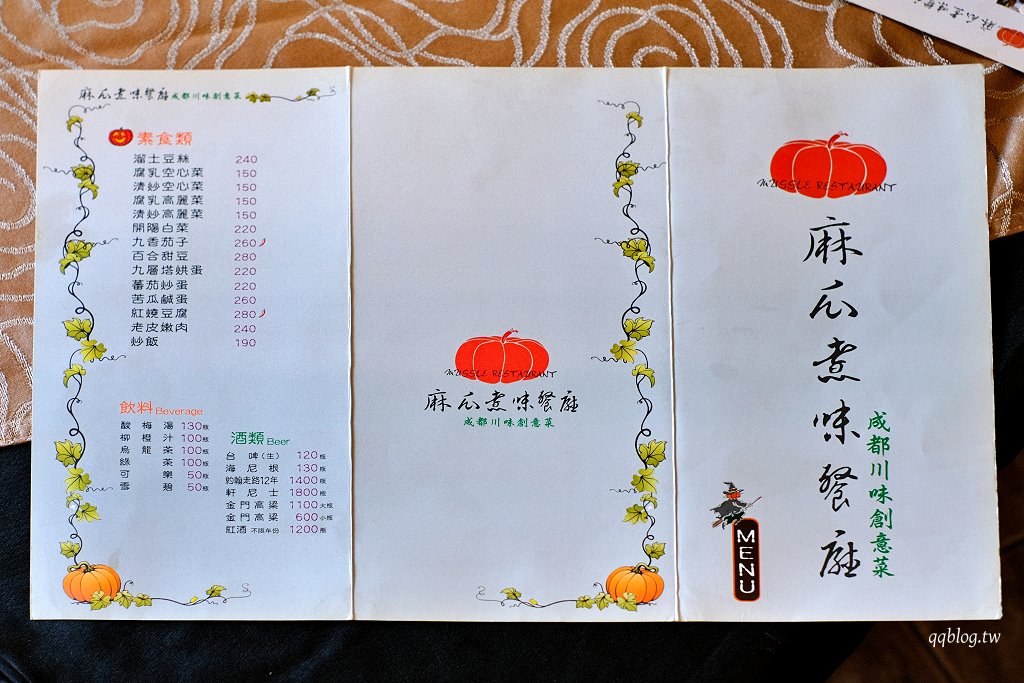 麻瓜煮味餐廳 成都川味創意菜
素食類
溜土豆絲 240
腐乳空心菜 150
清炒空心菜 150
腐乳高麗菜 150
清炒高麗菜 150
開陽白菜 220
九香茄子 260
百合甜豆 280
九層塔烘蛋 220
蕃茄炒蛋 220
苦瓜鹹蛋 260
紅燒豆腐 280
老皮嫩肉 240
炒飯 190
飲料 Beverage
酸梅湯 130瓶
柳橙汁 100瓶
烏龍茶 100瓶
綠茶 100瓶
可樂 50瓶
雪碧 50瓶
酒類 Beer
台啤(生) 120瓶
海尼根 130瓶
約翰走路12年 1400瓶
軒尼士 1800瓶
金門高粱 1100大瓶
金門高粱 600小瓶
紅酒 不限年份 1200瓶
MUGGLE RESTAURANT
麻瓜煮味餐廳
成都川味創意菜
MUGGLE RESTAURANT
麻瓜煮味餐廳
成都川味創意菜
MENU
麻瓜煮味餐
qqblog.tw